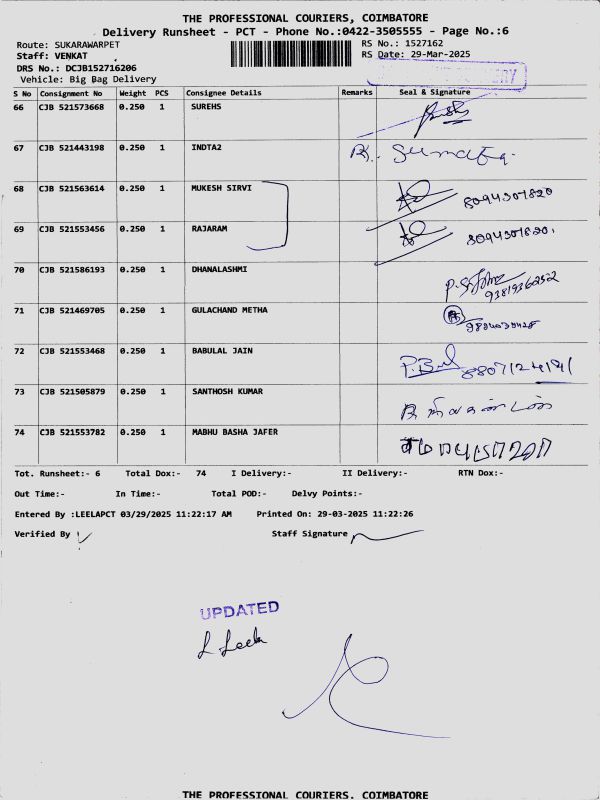 THE PROFESSIONAL COURIERS, COIMBATORE
Delivery Runsheet - PCT - Phone No.:0422-3505555 - Page No.:6
Route: SUKARAWARPET
RS No.: 1527162
Staff: VENKAT
RS Date: 29-Mar-2025
DRS No.: DCJB152716206
Vehicle: Big Bag Delivery
S No Consignment No Weight PCS Consignee Details Remarks Seal & Signature
66 CJB 521573668 0.250 1 SUREHS
67 CJB 521443198 0.250 1 INDTA2
68 CJB 521563614 0.250 1 MUKESH SIRVI 8094307820
69 CJB 521553456 0.250 1 RAJARAM
70 CJB 521586193 0.250 1 DHANALASHMI
71 CJB 521469705 0.250 1 GULACHAND METHA
72 CJB 521553468 0.250 1 BABULAL JAIN
73 CJB 521505879 0.250 1 SANTHOSH KUMAR
74 CJB 521553782 0.250 1 MABHU BASHA JAFER
Tot. Runsheet:- 6 Total Dox:- 74 I Delivery:- II Delivery:- RTN Dox:-
Out Time:- In Time:- Total POD:- Delvy Points:-
Entered By :LEELAPCT 03/29/2025 11:22:17 AM Printed On: 29-03-2025 11:22:26
Verified By Staff Signature
UPDATED
L Leela
THE PROFESSIONAL COURIERS, COIMBATORE